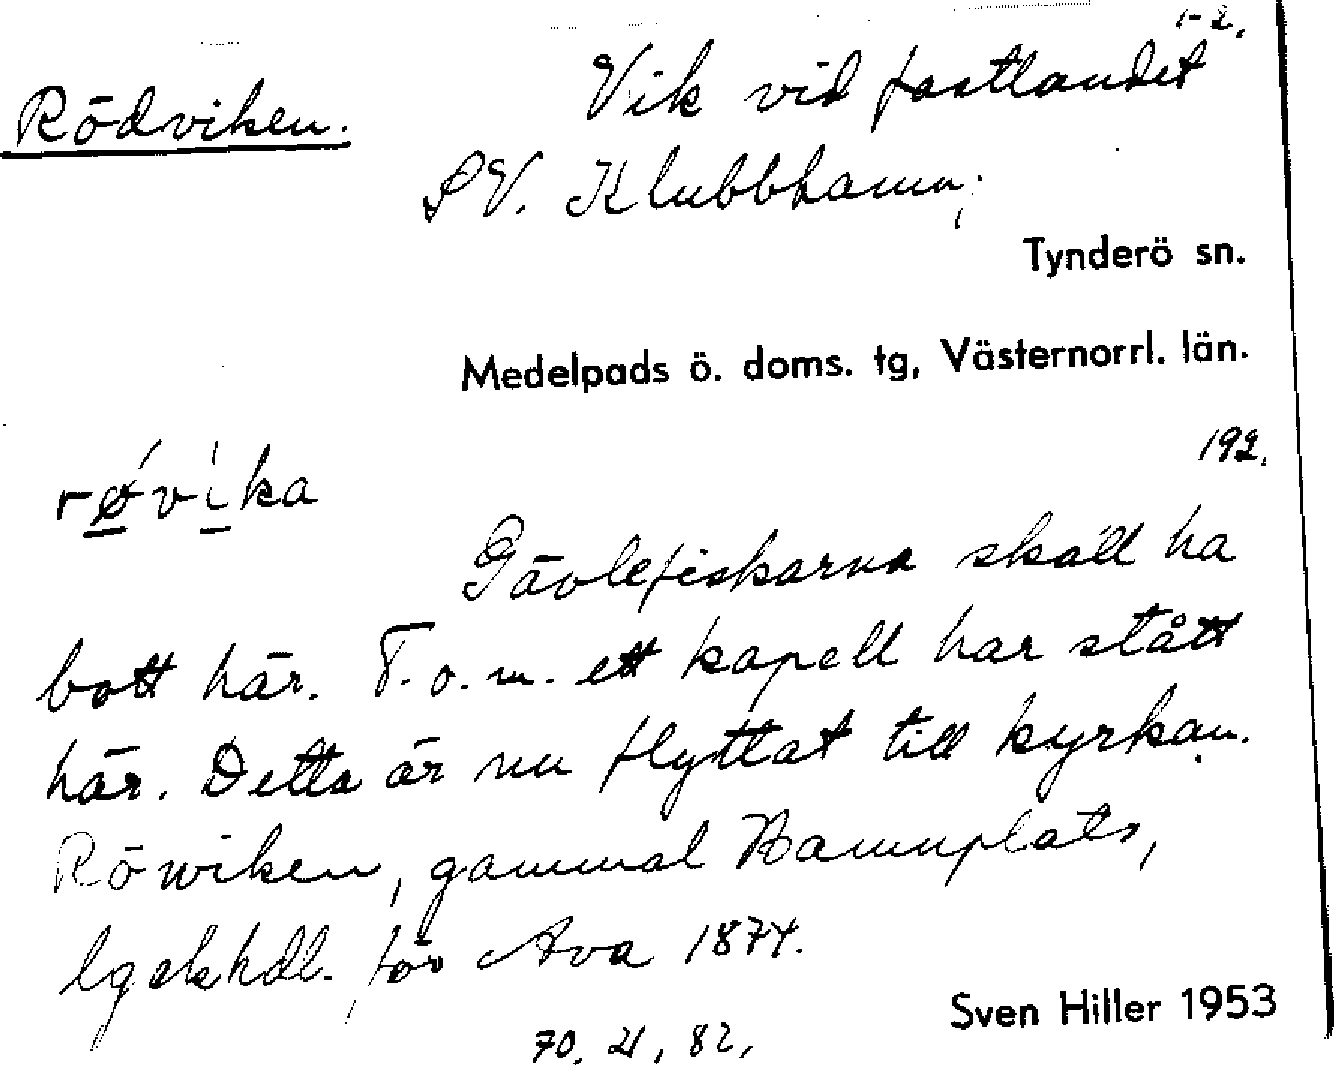 1-2.
Rödviken. Vik vid fastlandet
SV. Klubbhamn;
Tynderö sn.
Medelpads ö. doms. tg, Västernorrl. län.
192.
rǿvi̍ka
Gävlefiskarna skall ha
bott här. T.o.m. ett kapell har stått
här. Detta är nu flyttat till kyrkan.
Röwiken, gammal Hamnplats,
lgskhdl. för Ava 1874.
Sven Hiller 1953
70, 21, 82,